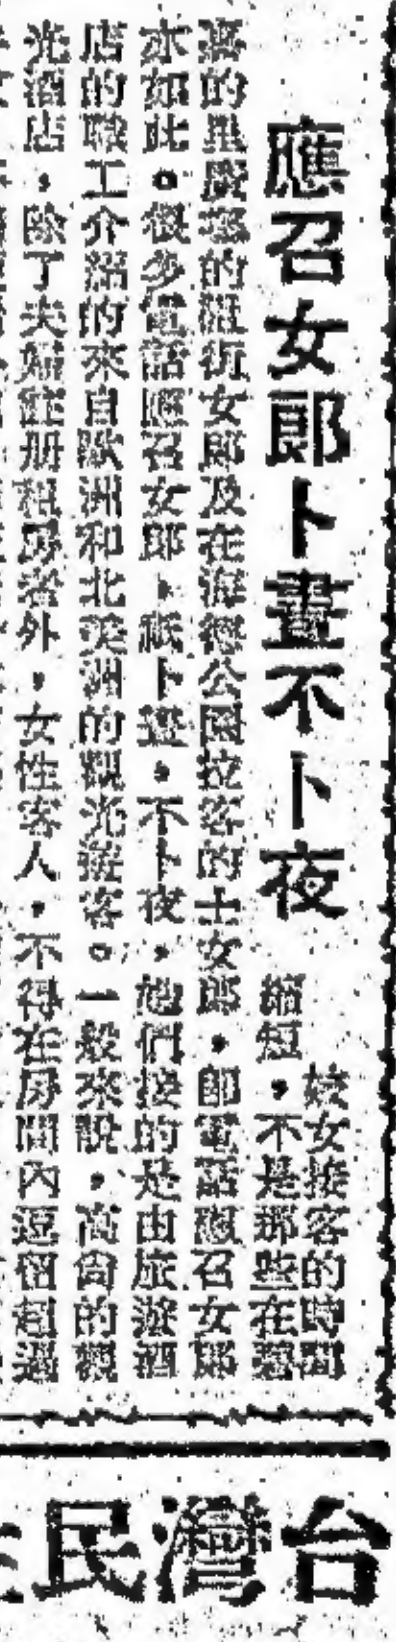 應召女郎卜晝不卜夜
妓女接客的時間
縮短，不是那些在
的的阻街女郎及在海德公園拉客的士女郎，即電話應召女郎
亦如此。很多電話應召女郎，祇卜晝，不卜夜，她們接的是由旅遊酒
店的職工介紹的來自歐洲和北美洲的觀光遊客。一般來說，高尚的觀
光酒店，除了夫婦註册租房者外，女性客人，不得在房間內逗留超過
台灣民